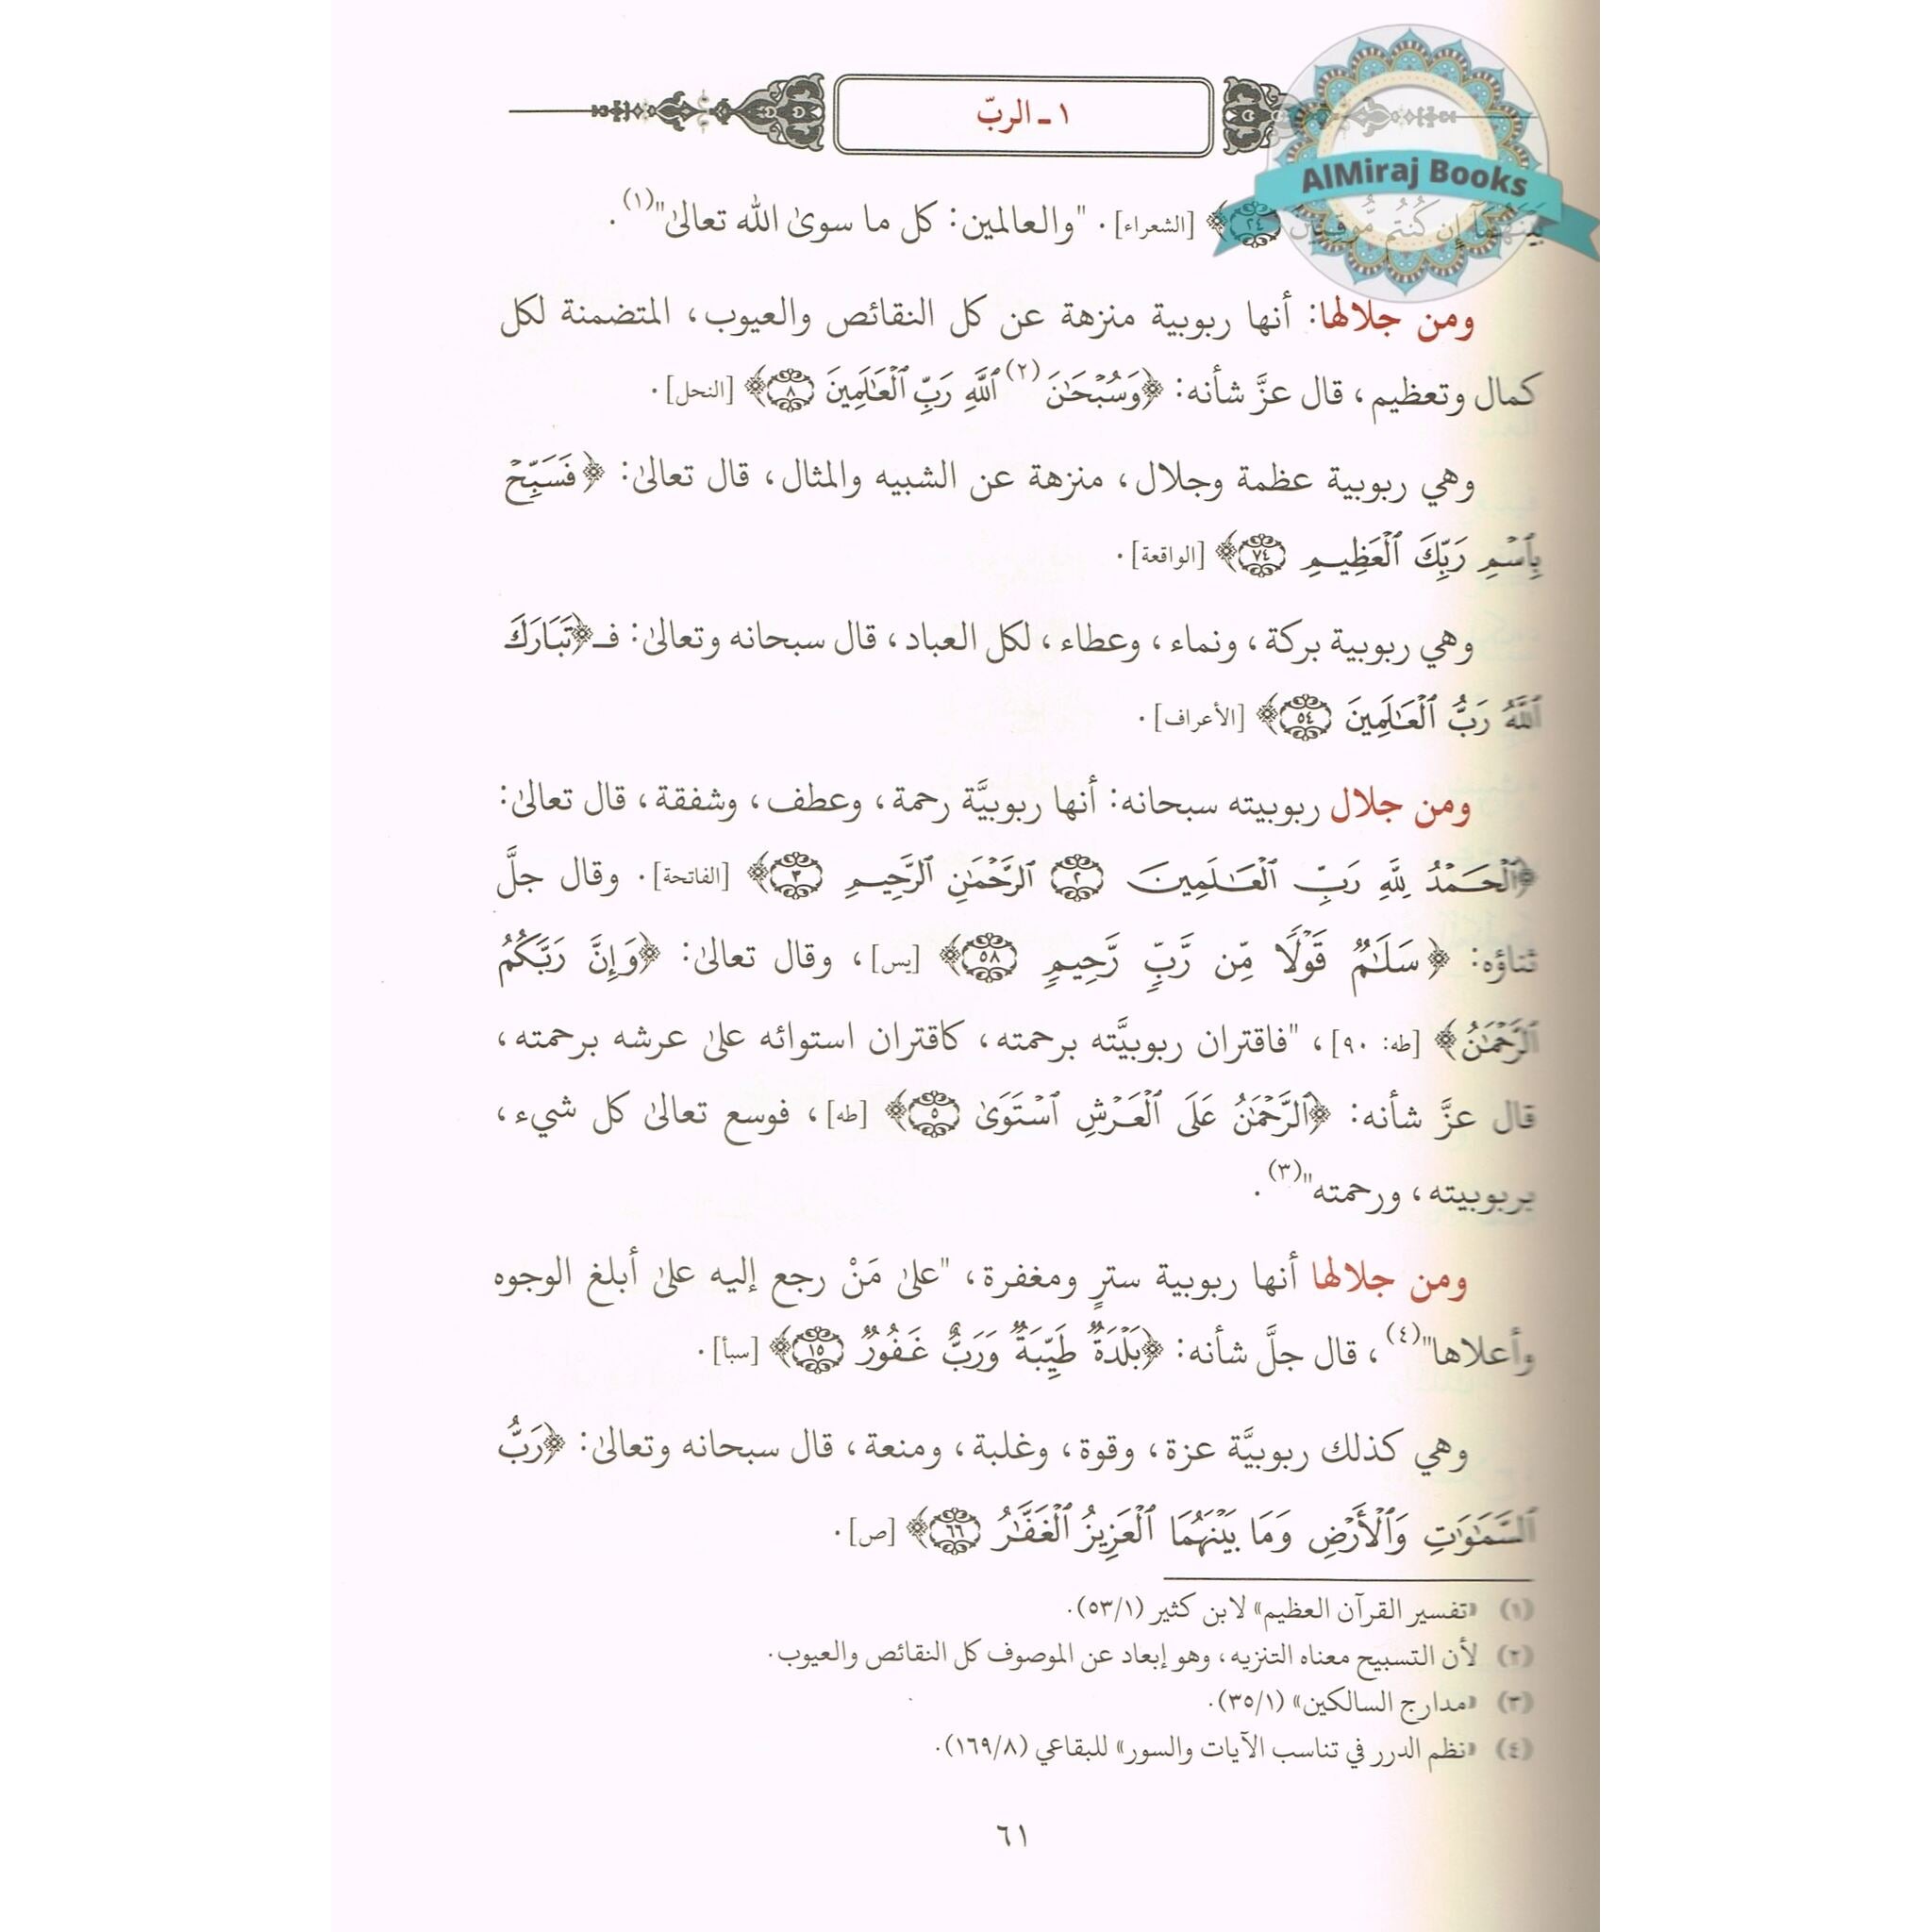 ١ ـ الربّ
AlMiraj Books
بَيْنَهُمَآ إِن كُنتُم مُّوقِنِينَ ٢٤﴾ [الشعراء]. "والعالمين: كل ما سوىٰ الله تعالىٰ"(١).
ومن جلالها: أنها ربوبية منزهة عن كل النقائص والعيوب، المتضمنة لكل
كمال وتعظيم، قال عزَّ شأنه: ﴿وَسُبْحَٰنَ(٢) ٱللَّهِ رَبِّ ٱلْعَٰلَمِينَ ٨﴾ [النحل].
وهي ربوبية عظمة وجلال، منزهة عن الشبيه والمثال، قال تعالىٰ: ﴿فَسَبِّحْ
بِٱسْمِ رَبِّكَ ٱلْعَظِيمِ ٧٤﴾ [الواقعة].
وهي ربوبية بركة، ونماء، وعطاء، لكل العباد، قال سبحانه وتعالىٰ: فـ﴿تَبَارَكَ
ٱللَّهُ رَبُّ ٱلْعَٰلَمِينَ ٥٤﴾ [الأعراف].
ومن جلال ربوبيته سبحانه: أنها ربوبيَّة رحمة، وعطف، وشفقة، قال تعالىٰ:
﴿ٱلْحَمْدُ لِلَّهِ رَبِّ ٱلْعَٰلَمِينَ ٢ ٱلرَّحْمَٰنِ ٱلرَّحِيمِ ٣﴾ [الفاتحة]. وقال جلَّ
ثناؤه: ﴿سَلَٰمٌ قَوْلًا مِّن رَّبٍّ رَّحِيمٍ ٥٨﴾ [يس]، وقال تعالىٰ: ﴿وَإِنَّ رَبَّكُمُ
ٱلرَّحْمَٰنُ﴾ [طه: ٩٠]، "فاقتران ربوبيَّته برحمته، كاقتران استوائه علىٰ عرشه برحمته،
قال عزَّ شأنه: ﴿ٱلرَّحْمَٰنُ عَلَى ٱلْعَرْشِ ٱسْتَوَىٰ ٥﴾ [طه]، فوسع تعالىٰ كل شيء،
بربوبيته، ورحمته"(٣).
ومن جلالها أنها ربوبية سترٍ ومغفرة، "علىٰ مَنْ رجع إليه علىٰ أبلغ الوجوه
وأعلاها"(٤)، قال جلَّ شأنه: ﴿بَلْدَةٌ طَيِّبَةٌ وَرَبٌّ غَفُورٌ ١٥﴾ [سبأ].
وهي كذلك ربوبيَّة عزة، وقوة، وغلبة، ومنعة، قال سبحانه وتعالىٰ: ﴿رَبُّ
ٱلسَّمَٰوَٰتِ وَٱلْأَرْضِ وَمَا بَيْنَهُمَا ٱلْعَزِيزُ ٱلْغَفَّٰرُ ٦٦﴾ [ص].
(١) «تفسير القرآن العظيم» لابن كثير (٥٣/١).
(٢) لأن التسبيح معناه التنزيه، وهو إبعاد عن الموصوف كل النقائص والعيوب.
(٣) «مدارج السالكين» (٣٥/١).
(٤) «نظم الدرر في تناسب الآيات والسور» للبقاعي (١٦٩/٨).
٦١